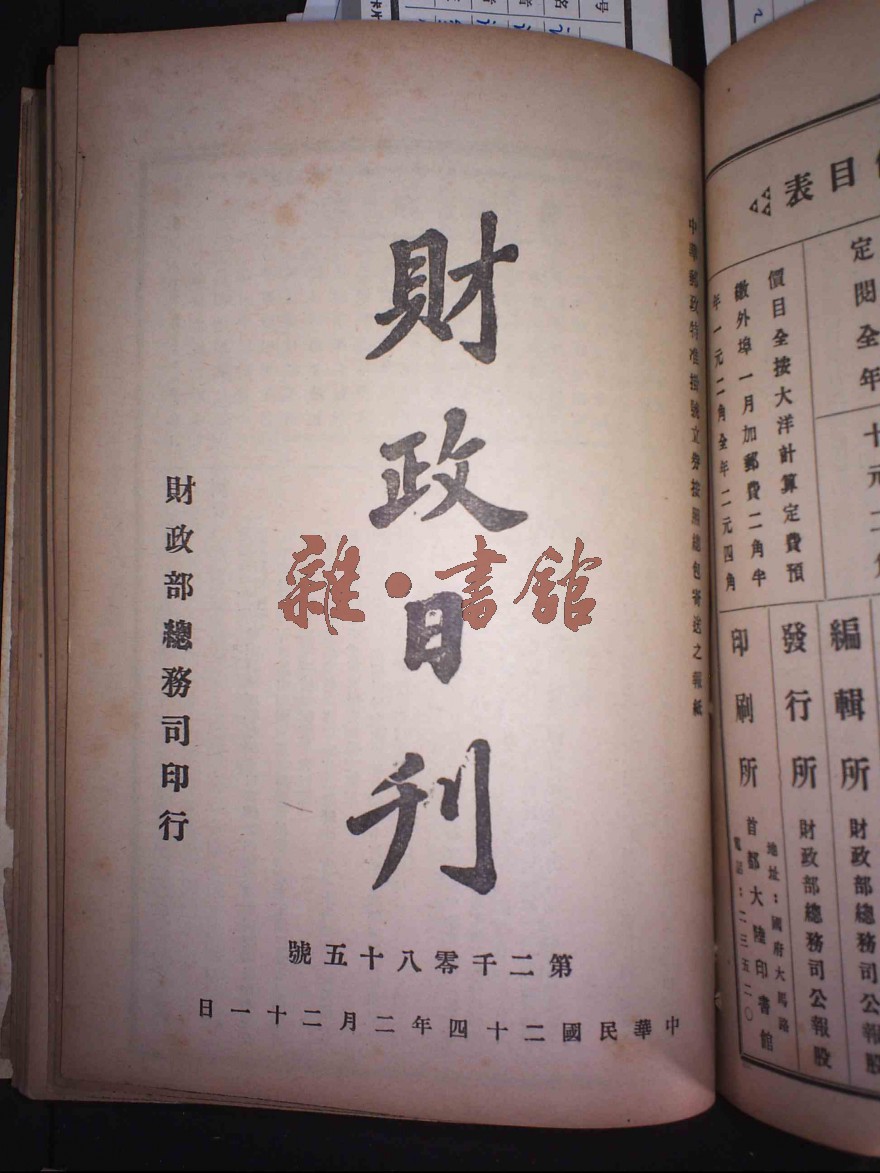 中華郵政特准掛號立劵按照總包寄送之報紙
財政日刊
第二千零八十五號
中華民國二十四年二月二十一日
財政部總務司印行
雜·書館
目表
定閱全年
十元二角
價目全按大洋計算定費預
繳外埠一月加郵費二角半
年一元二角全年二元四角
編輯所 財政部總務司公報股
發行所 財政部總務司公報股
印刷所 首都大陸印書館
地址：國府大馬路
電話：二三五二〇